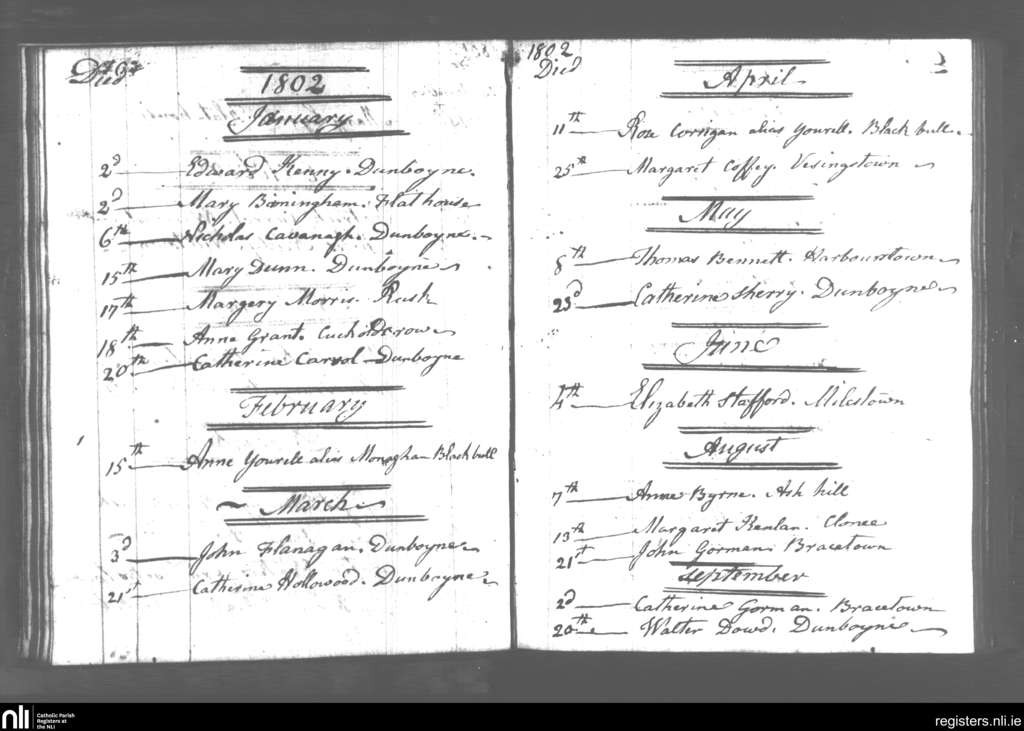 Died
1802
January
2d Edward Kenny. Dunboyne.
2d Mary Birmingham. Flathouse
6th Nicholas Cavanagh. Dunboyne.
15th Mary Dunn. Dunboyne
17th Margery Morris. Rusk
18th Anne Grant. Cuckoldsrow
20th Catherine Carrol Dunboyne
February
15th Anne Yourell alias Monaghan Blackbull
March
3d John Flanagan. Dunboyne
21st Catherine Hollowood. Dunboyne
1802
Died
2
April
11th Rose Corrigan alias Yourell. Black bull.
25th Margaret Coffey. Vesingstown
May
8th Thomas Bennett. Harbourstown
23d Catherine Sherry. Dunboyne
June
4th Elizabeth Stafford. Milestown
August
7th Anne Byrne. Ash hill
13th Margaret Kenlan. Clonee
21st John Gorman. Bracetown
September
2d Catherine Gorman. Bracetown
20th Walter Dowd. Dunboyne
nli
Catholic Parish
Registers at
the NLI
registers.nli.ie